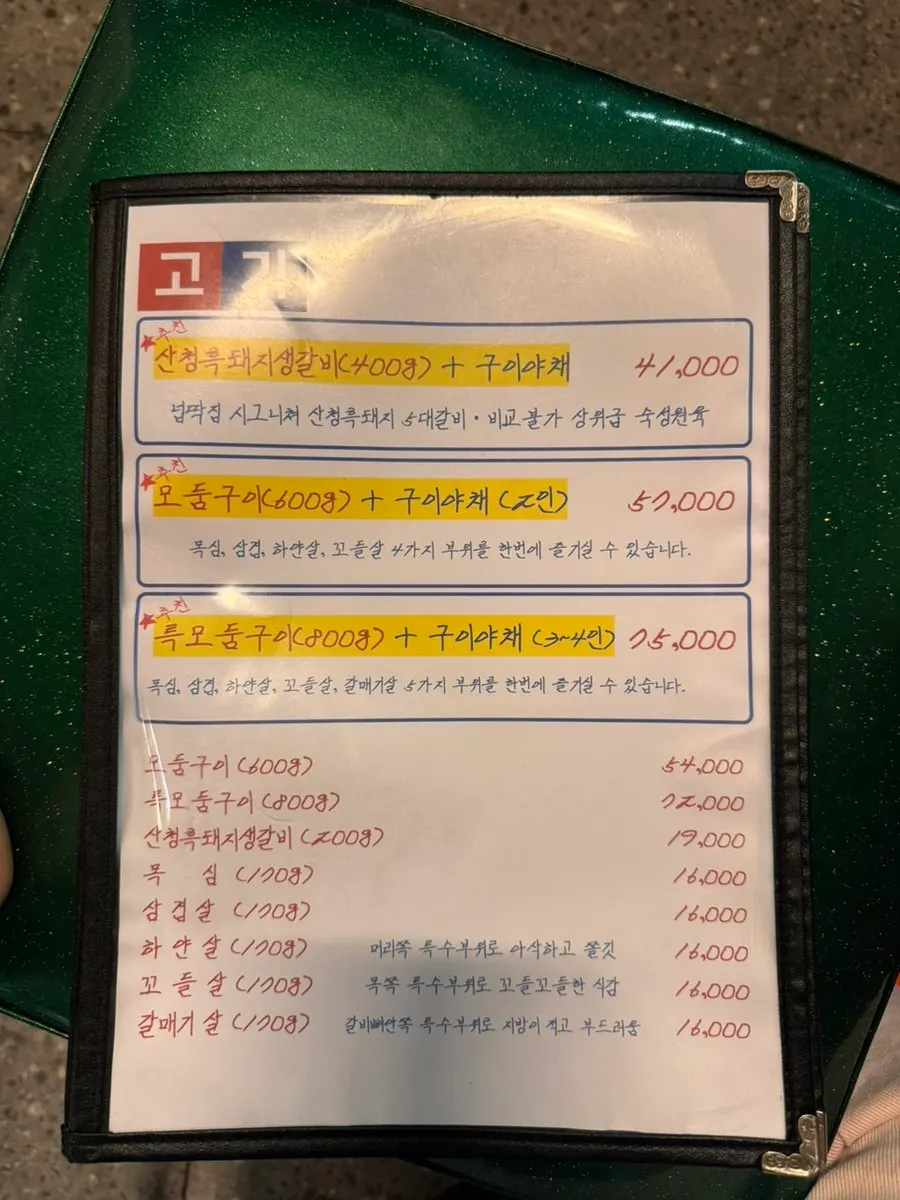 고기
추천
산청흑돼지생갈비(400g) + 구이야채 41,000
넙딱집 시그니쳐 산청흑돼지 5대갈비·비교불가 상위급 숙성원육
추천
모둠구이(600g) + 구이야채 (2인) 57,000
목심, 삼겹, 하얀살, 꼬들살 4가지 부위를 한번에 즐기실 수 있습니다.
추천
특모둠구이(800g) + 구이야채 (3~4인) 75,000
목심, 삼겹, 하얀살, 꼬들살, 갈매기살 5가지 부위를 한번에 즐기실 수 있습니다.
모둠구이 (600g) 54,000
특모둠구이 (800g) 72,000
산청흑돼지생갈비 (200g) 19,000
목 심 (170g) 16,000
삼겹살 (170g) 16,000
하얀살 (170g) 머리쪽 특수부위로 아삭하고 쫄깃 16,000
꼬들살 (170g) 목쪽 특수부위로 꼬들꼬들한 식감 16,000
갈매기살 (170g) 갈비뼈안쪽 특수부위로 지방이 적고 부드러움 16,000